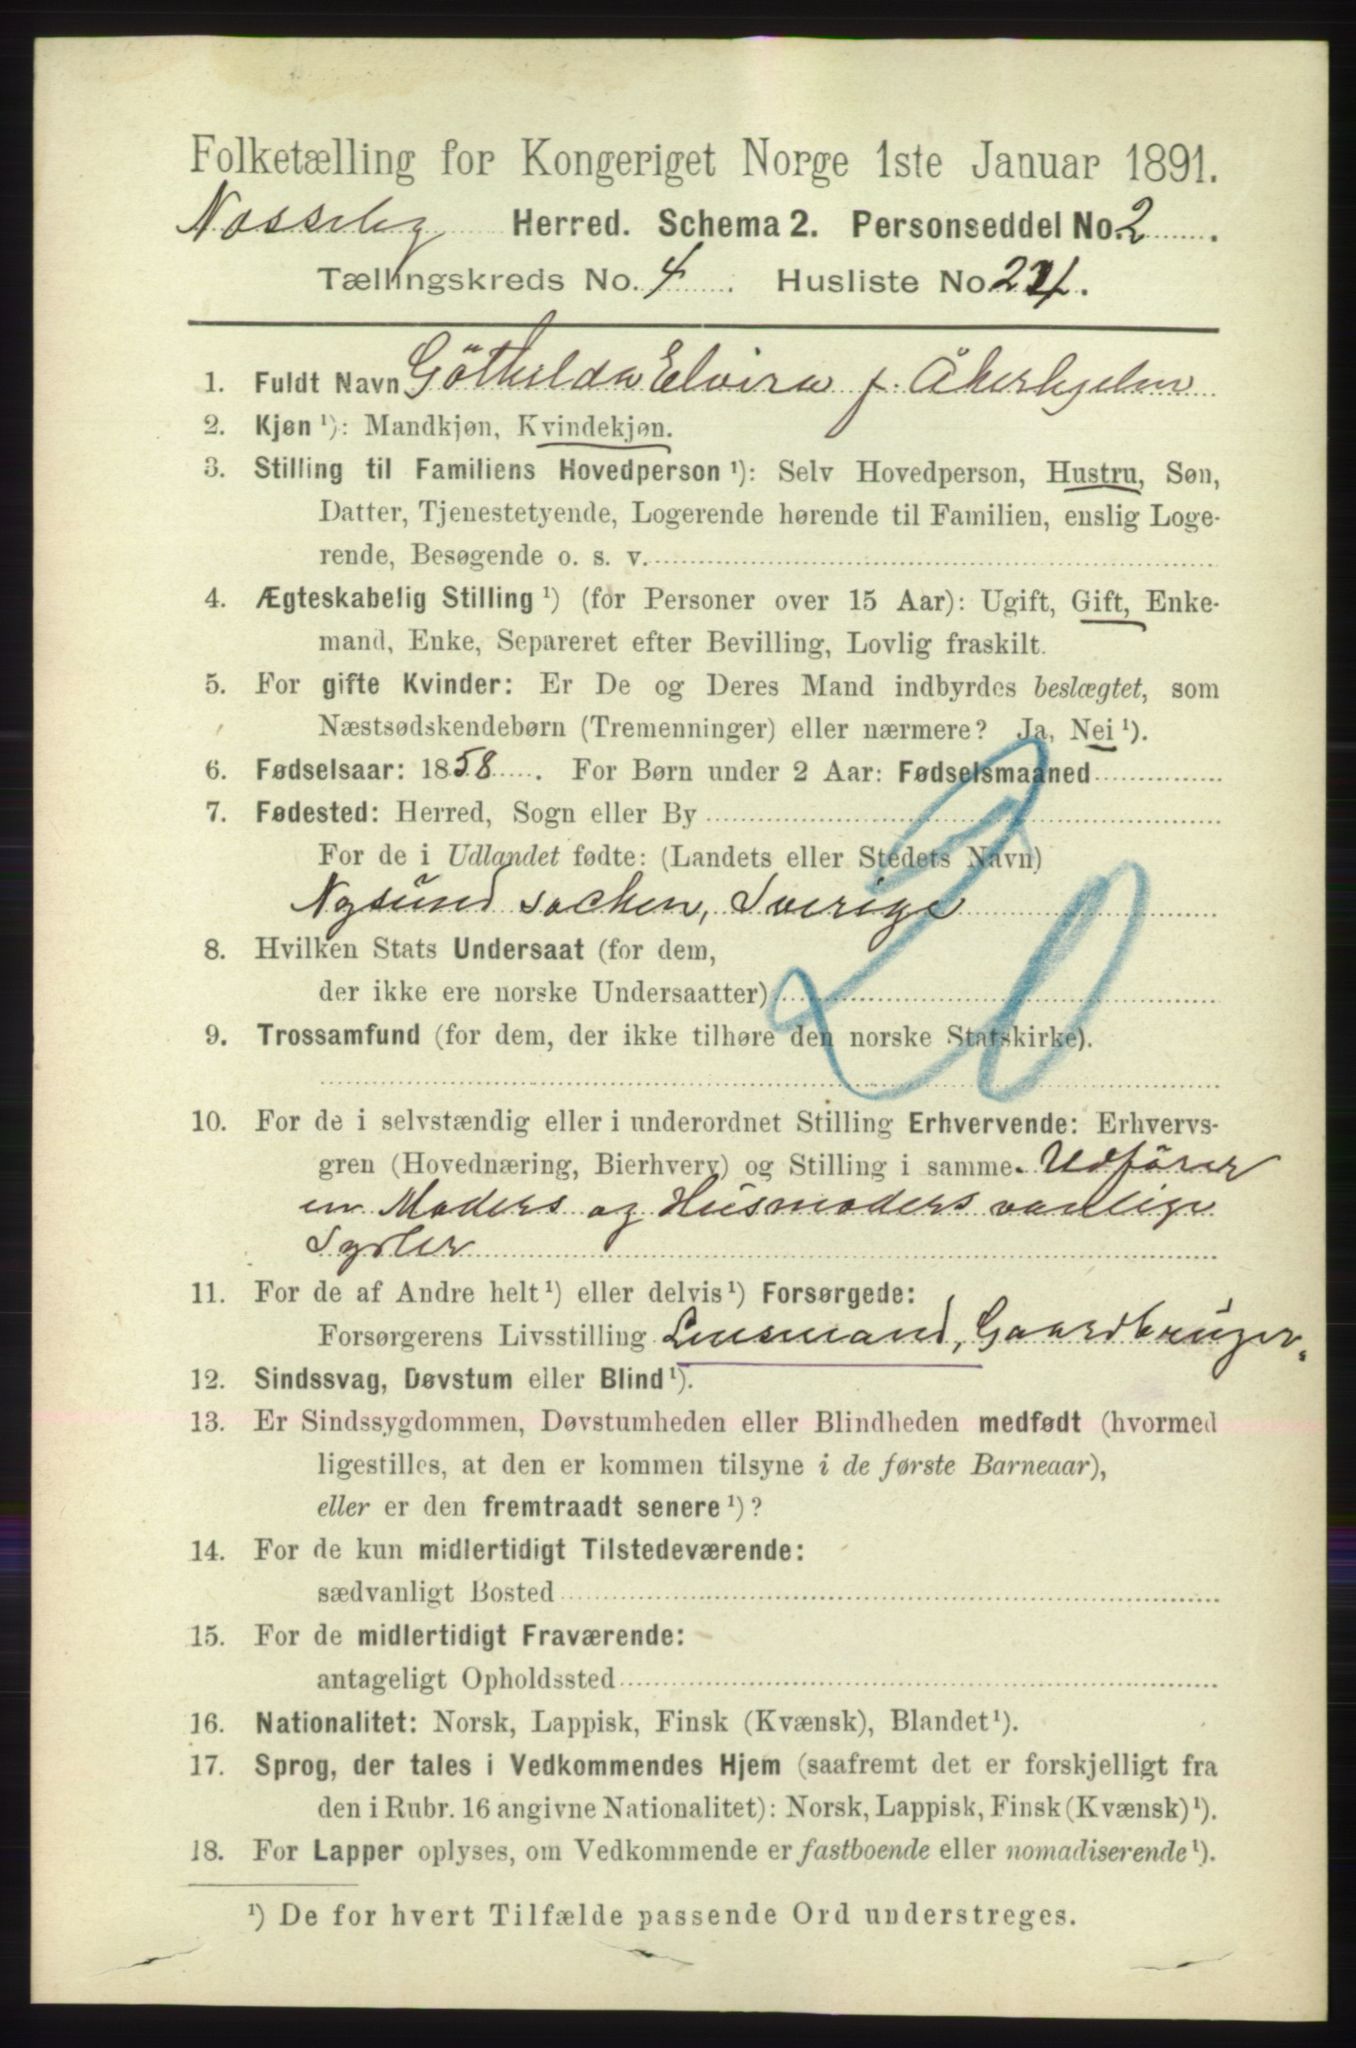 Folketælling for Kongeriget Norge 1ste Januar 1891.
Nesseby Herred. Schema 2. Personseddel No. 2.
Tællingskreds No. 4. Husliste No. 24.
1. Fuldt Navn Göthilda Elvira f. Åkerhjelm
2. Kjøn ¹): Mandkjøn, Kvindekjøn.
3. Stilling til Familiens Hovedperson ¹): Selv Hovedperson, Hustru, Søn,
Datter, Tjenestetyende, Logerende hørende til Familien, enslig Loge-
rende, Besøgende o. s. v.
4. Ægteskabelig Stilling ¹) (for Personer over 15 Aar): Ugift, Gift, Enke-
mand, Enke, Separeret efter Bevilling, Lovlig fraskilt.
5. For gifte Kvinder: Er De og Deres Mand indbyrdes beslægtet, som
Næstsødskendebørn (Tremenninger) eller nærmere? Ja, Nei ¹).
6. Fødselsaar: 1858. For Børn under 2 Aar: Fødselsmaaned
7. Fødested: Herred, Sogn eller By
For de i Udlandet fødte: (Landets eller Stedets Navn)
Nysund sochen, Sverige
20
8. Hvilken Stats Undersaat (for dem,
der ikke ere norske Undersaatter)
9. Trossamfund (for dem, der ikke tilhøre den norske Statskirke).
10. For de i selvstændig eller i underordnet Stilling Erhvervende: Erhvervs-
gren (Hovednæring, Bierhverv) og Stilling i samme. Udförer
en Moders og Husmoders vanlige
Sysler
11. For de af Andre helt ¹) eller delvis ¹) Forsørgede:
Forsørgerens Livsstilling Lensmand, Gaardbruger.
12. Sindssvag, Døvstum eller Blind ¹).
13. Er Sindssygdommen, Døvstumheden eller Blindheden medfødt (hvormed
ligestilles, at den er kommen tilsyne i de første Barneaar),
eller er den fremtraadt senere ¹)?
14. For de kun midlertidigt Tilstedeværende:
sædvanligt Bosted
15. For de midlertidigt Fraværende:
antageligt Opholdssted
16. Nationalitet: Norsk, Lappisk, Finsk (Kvænsk), Blandet ¹).
17. Sprog, der tales i Vedkommendes Hjem (saafremt det er forskjelligt fra
den i Rubr. 16 angivne Nationalitet): Norsk, Lappisk, Finsk (Kvænsk) ¹).
18. For Lapper oplyses, om Vedkommende er fastboende eller nomadiserende ¹).
¹) De for hvert Tilfælde passende Ord understreges.